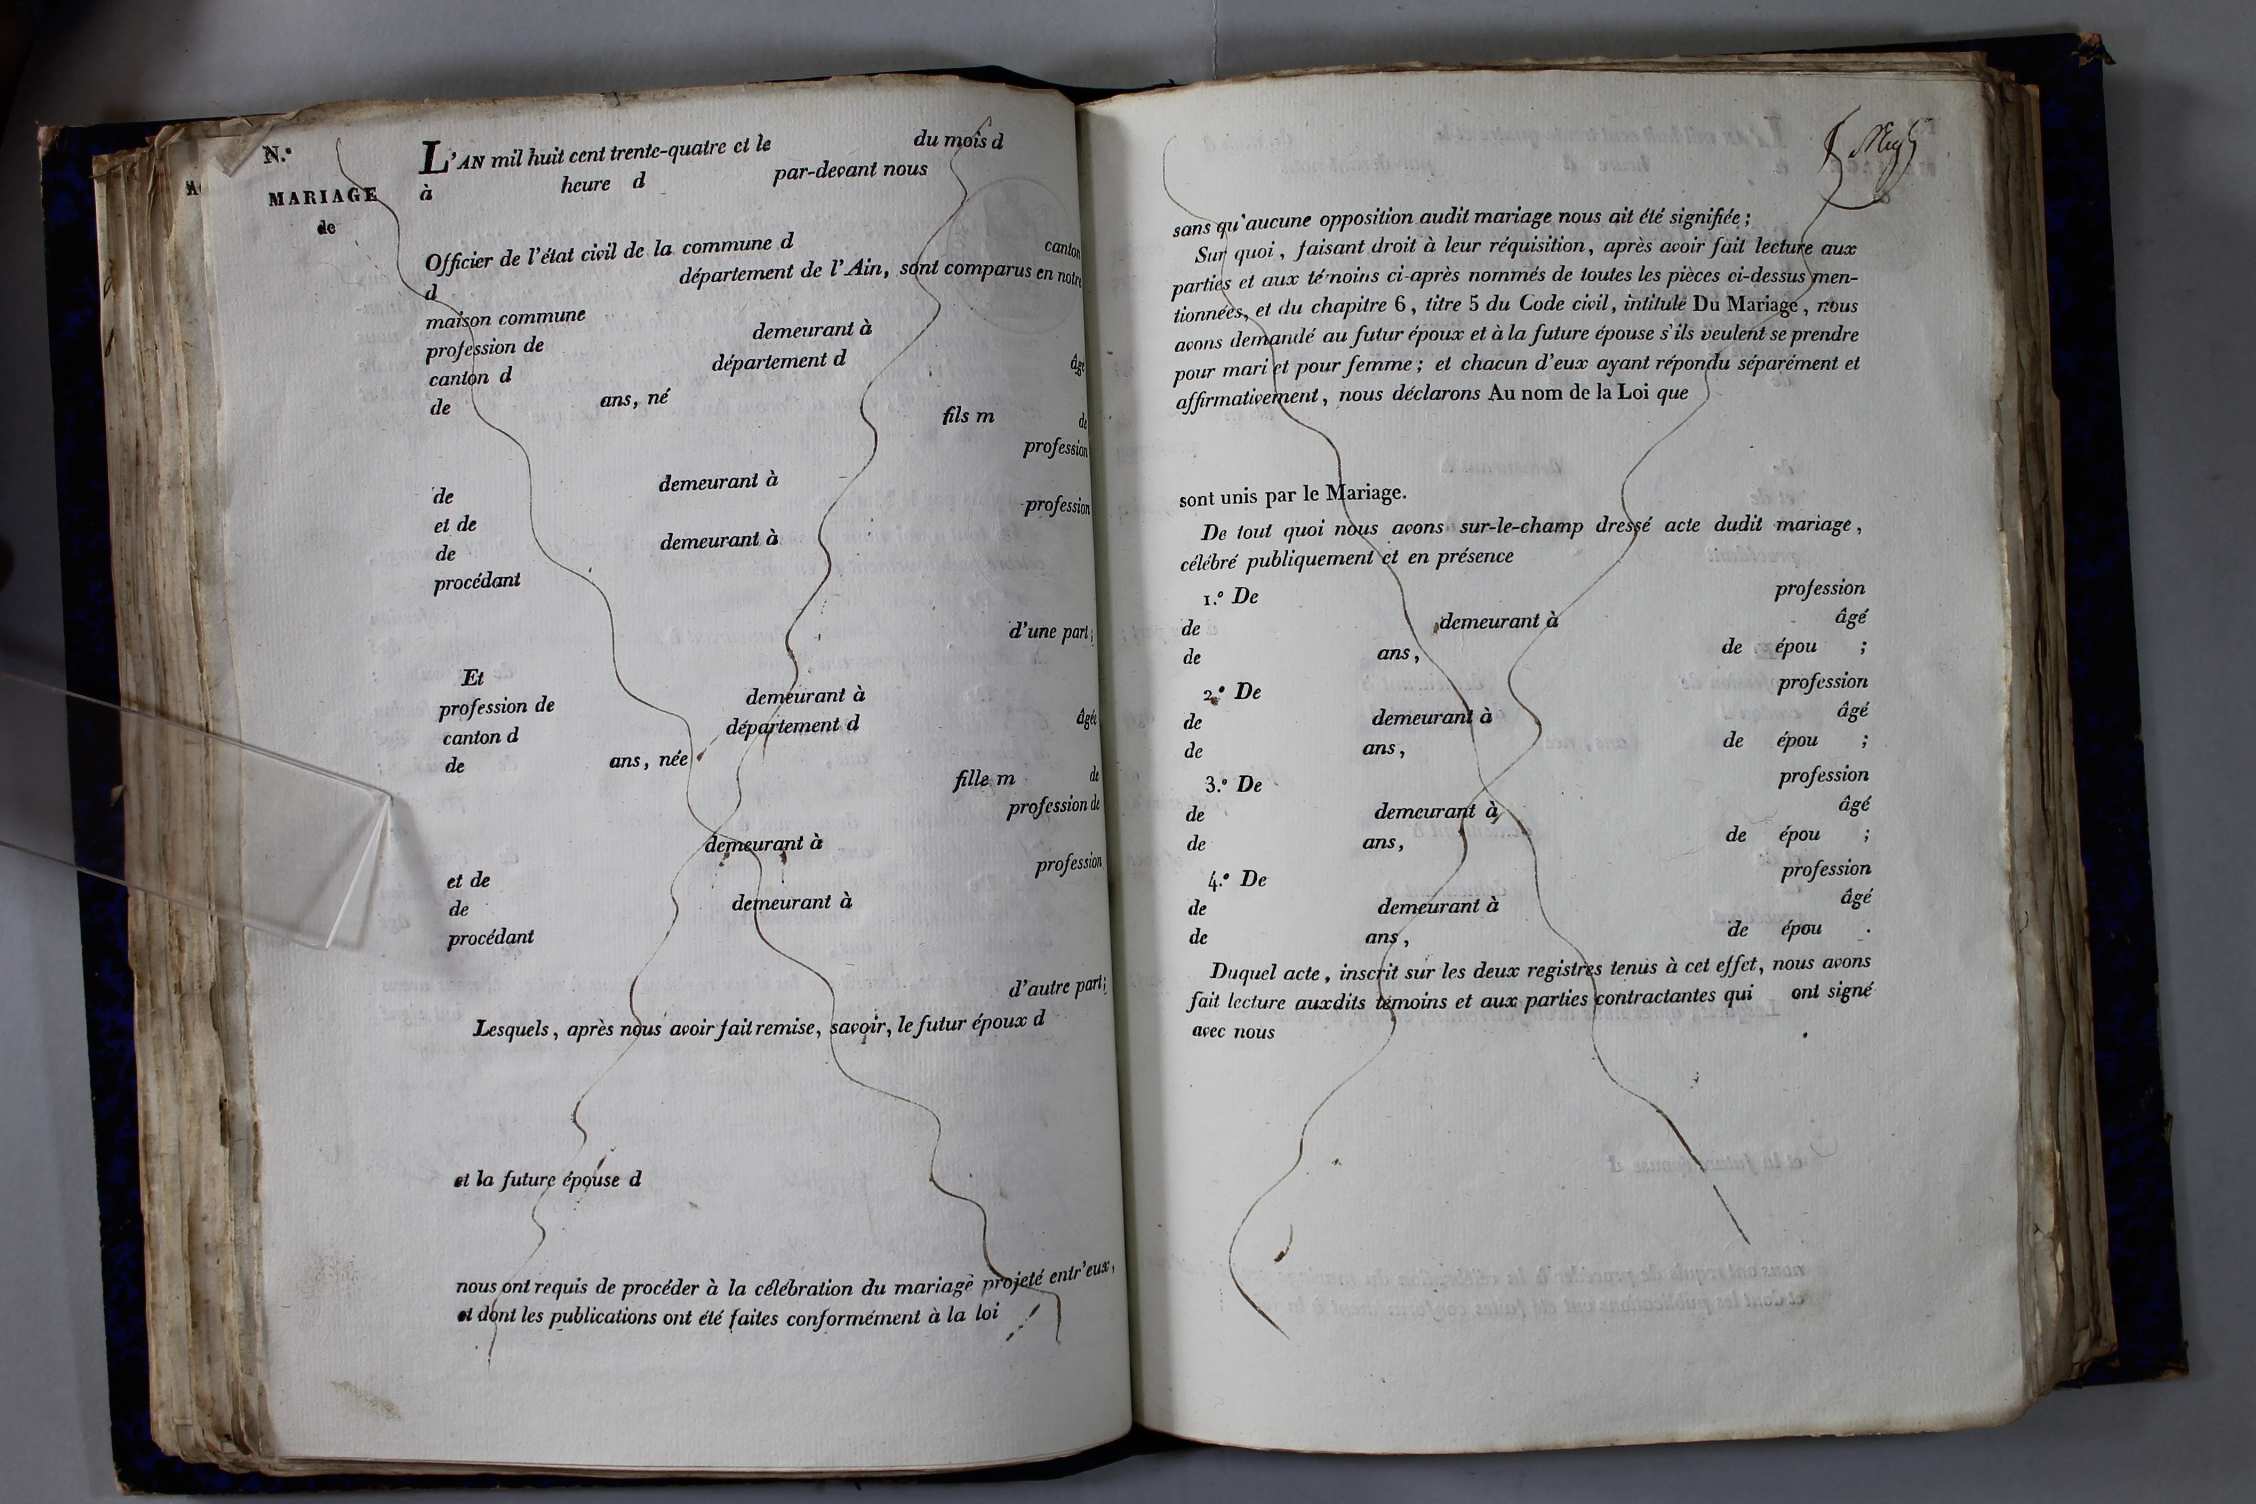 N.°
MARIAGE
de
L'AN mil huit cent trente-quatre et le du mois d
à heure d par-devant nous
Officier de l'état civil de la commune d canton
d département de l'Ain, sont comparus en notre
maison commune
profession de demeurant à
canton d département d âgé
de ans, né
fils m de
profession
de demeurant à
et de profession
de demeurant à
procédant
d'une part;
Et
profession de demeurant à
canton d département d âgée
de ans, née
fille m de
profession de
demeurant à
et de profession
de demeurant à
procédant
d'autre part;
Lesquels, après nous avoir fait remise, savoir, le futur époux d
et la future épouse d
nous ont requis de procéder à la célébration du mariage projeté entr'eux,
et dont les publications ont été faites conformément à la loi
sans qu'aucune opposition audit mariage nous ait été signifiée;
Sur quoi, faisant droit à leur réquisition, après avoir fait lecture aux
parties et aux témoins ci-après nommés de toutes les pièces ci-dessus men-
tionnées, et du chapitre 6, titre 5 du Code civil, intitulé Du Mariage, nous
avons demandé au futur époux et à la future épouse s'ils veulent se prendre
pour mari et pour femme; et chacun d'eux ayant répondu séparément et
affirmativement, nous déclarons Au nom de la Loi que
sont unis par le Mariage.
De tout quoi nous avons sur-le-champ dressé acte dudit mariage,
célébré publiquement et en présence
1.° De profession
de demeurant à âgé
de ans, de épou ;
2.° De profession
de demeurant à âgé
de ans, de épou ;
3.° De profession
de demeurant à âgé
de ans, de épou ;
4.° De profession
de demeurant à âgé
de ans, de épou .
Duquel acte, inscrit sur les deux registres tenus à cet effet, nous avons
fait lecture auxdits témoins et aux parties contractantes qui ont signé
avec nous .